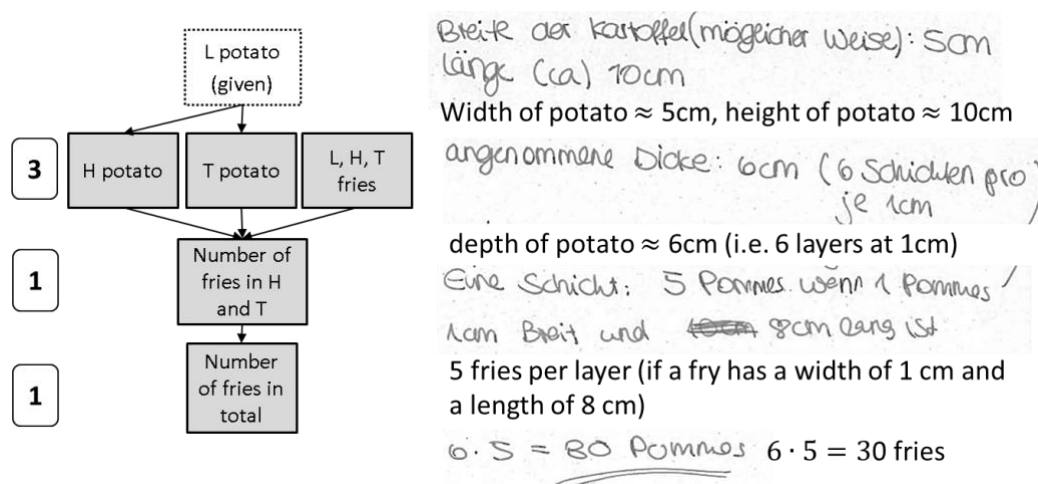 L potato
(given)
3
H potato
T potato
L, H, T
fries
1
Number of
fries in H
and T
1
Number
of fries in
total
Breite der Kartoffel (möglicher Weise): 5cm
Länge (ca) 10cm
Width of potato ≈ 5cm, height of potato ≈ 10cm
angenommene Dicke: 6cm (6 Schichten pro
je 1cm)
depth of potato ≈ 6cm (i.e. 6 layers at 1cm)
Eine Schicht: 5 Pommes wenn 1 Pommes
1cm Breit und 8cm lang ist
5 fries per layer (if a fry has a width of 1 cm and
a length of 8 cm)
6 · 5 = 30 Pommes 6 · 5 = 30 fries